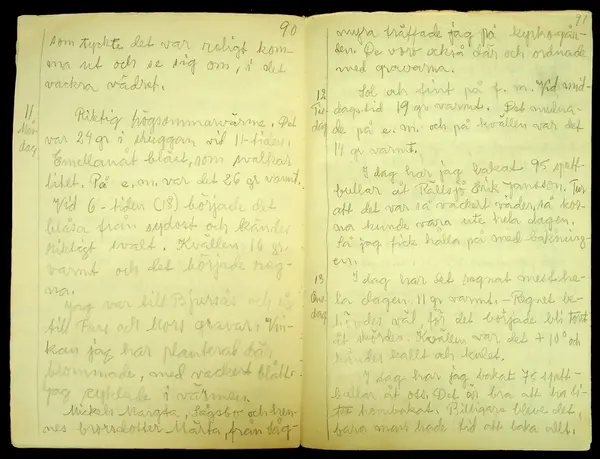 90
som tyckte det var roligt kom-
ma ut och se sig om, i det
vackra vädret.
11
Mån
dag
Riktig högsommarvärme. Det
var 24 gr i skuggan vid 11-tiden.
Emellanåt blåst, som svalkade
litet. På e.m. var det 26 gr varmt.
Vid 6-tiden (18) började det
blåsa från sydost och kändes
riktigt svalt. Kvällen 16 gr.
varmt och det började reg-
na.
Jag var till Bjursås och
till Fars och Mors gravar. Vin-
kan jag har planterat där
blommade, med vackert blått.
Jag cyklade i värmen.
Mickels Margta, Sågsbo och hen-
nes brorsdotter Märta, från Säg-
91
myra träffade jag på kyrkogår-
den. De voro också där och ordnade
med gravarna.
12
Tis
dag
Sol och fint på f.m. Vid mid-
dagstid 19 gr varmt. Det mulna-
de på e.m. och på kvällen var det
14 gr varmt.
I dag har jag bakat 95 spett-
bullar åt Erik Jansson. Tur
att det var så vackert väder, så kor-
na kunde vara ute hela dagen.
Så jag fick hålla på med bakning-
en.
13
Ons
dag
I dag har det regnat mest he-
la dagen. 11 gr varmt. - Regnet be-
hövdes väl, för det började bli torrt
åt mördes. Kvällen var det + 10° och
kändes kallt och kulet.
I dag har jag bakat 76 spett-
bullar åt oss. Det är bra att ha li-
tet hembakat. Billigare bleve det,
bara man hade tid att baka allt.